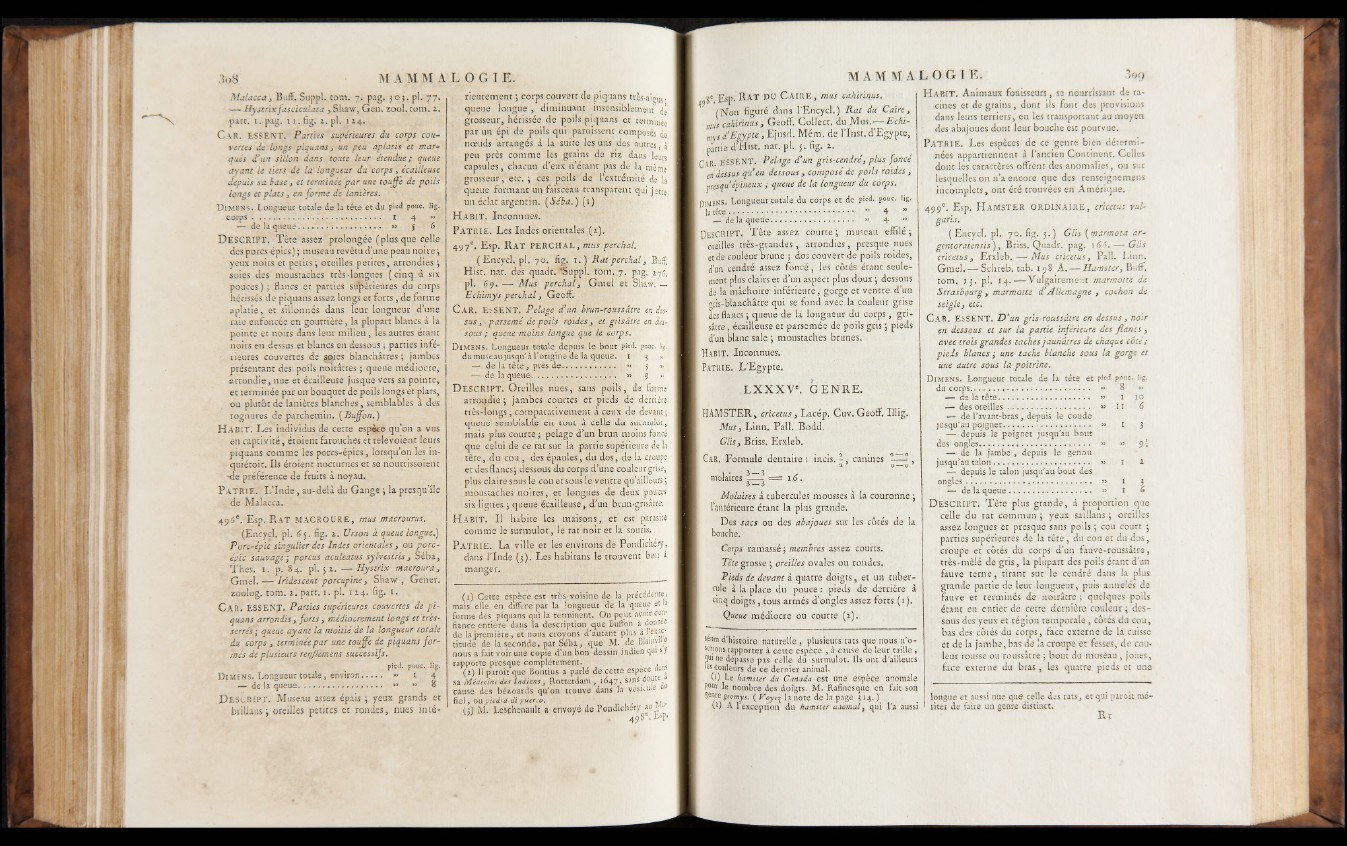 308 MAMMALOGIE.
Malacca, Buff. Suppl. tom. 7. pag. 303. pl. 77.
— Hystrix fasciculata, Shaw, Gen. zool. tom. 2.
part. 1. pag. 11. fig. 2. pl. 124.
CAR. ESSENT. Parties supérieures du corps cou-
vertes de longs piquans, un peu aplatis et mar-
qués d'un sillon dans toute leur étendue; queue
ayant le tiers de la longueur du corps, écailleuse
depuis sa base, et terminée par une touffe de poils
longs et plats, en forme de lanières.
DIMENS. Longueur totale de la tête et du pied. pouc. lig.
corps . . . . . . 1 4 »
— de la queue . . . . . . » 5 6
DESCRIPT. Tête assez prolongée (plus que celle
des porcs-épics); museau revêtu d'une peau noire;
yeux noirs et petits; oreilles petites, arrondies;
soies des moustaches très-longues (cinq à six
pouces); flancs et parties supérieures du corps
hérissés de piquans assez longs et forts, de forme
aplatie, et sillonnés dans leur longueur d'une
raie enfoncée en gouttière, la plupart blancs à la
pointe et noirs dans leur milieu, les autres étant
noirs en dessus et blancs en dessous; parties infé-
rieures couvertes de soies blanchâtres; jambes
présentant des poils noirâtres; queue médiocre,
arrondie, nue et écailleuse jusque vers sa pointe,
et terminée par un bouquet de poils longs et plats,
ou plutôt de lanières blanches, semblables à des
rognures de parchemin. (Buffon.)
HABIT. Les individus de cette espèce qu'on a vus
en captivité, étoient farouches et relevoient leurs
piquans comme les porcs-épics, lorsqu'on les in-
quiétoit. Ils étoient nocturnes et se nourrissoient
de préférence de fruits à noyau.
PATRIE. L'Inde, au-delà du Gange; la presqu'île
de Malacca.
496e. Esp. RAT MACROURE, mus macrourus.
(Encycl. pl. 65. fig. 2. Urson à queue longue.)
Porc-épic singulier des Indes orientales, ou porc-
épic sauvage; porcus aculeatus sylvestris, Séba,
Thes. 1. p. 84. pl. 52. — Hystrix macroura,
Gmel. — Iridescent porcupine, Shaw, Gener.
zoolog. tom. 2. part. 1. pl. 124. fig. 1.
CAR. ESSENT. Parties supérieures couvertes de pi-
quans arrondis, forts, médiocrement longs et très-
serrés; queue ayant la moitié de la longueur totale
du corps, terminée par une touffe de piquans for-
més de plusieurs renflemens successifs.
pied. pouc. lig.
DIMENS. Longueur totale, environ..... » 1 4
— de la queue . . . . . . » » 8
DESCRIPT. Museau assez épais; yeux grands et
brillans; oreilles petites et rondes, nues inté-
rieurement; corps couvert de piquans très-aigus;
queue longue, diminuant insensiblement de
grosseur, hérissée de poils piquans et terminée
par un épi de poils qui paroissent composés de
nœuds arrangés à la suite les uns des autres, à
peu près comme les grains de riz dans leurs
capsules, chacun d'eux n'étant pas de la même
grosseur, etc.; ces poils de l'extrémité de la
queue formant un faisceau transparent qui jette
un éclat argentin. (Séba.) (1)
HABIT. Inconnues.
PATRIE. Les Indes orientales (2).
497e. Esp. RAT PERCHAL, mus perchal.
(Encycl. pl. 70. fig. 1.) Rat perchal, Buff.
Hist. nat. des quadr. Suppl. tom. 7. pag. 276.
pl. 69. — Mus perchal, Gmel et Shaw. —
Echimys perchal, Geoff.
CAR. ESSENT. Pelage d'un brun-roussâtre en des-
sus, parsemé de poils roides, et grisâtre en des-
sous; queue moins longue que le corps.
DIMENS. Longueur totale depuis le bout pied. pouc. lig.
du museau jusqu'à l'origine de la queue. 1 3 »
— de la tête, près de . . . . . . » 3 »
— de la queue . . . . . . » 9 »
DESCRIPT. Oreilles nues, sans poils, de forme
arrondie; jambes courtes et pieds de derrière
très-longs, comparativement à ceux de devant;
queue semblable en tout à celle du surmulot,
mais plus courte; pelage d'un brun moins foncé
que celui de ce rat sur la partie supérieure de la
tête, du cou, des épaules, du dos, de la croupe
et des flancs; dessous du corps d'une couleur grise,
plus claire sous le cou et sous le ventre qu'ailleurs;
moustaches noires, et longues de deux pouces
six lignes; queue écailleuse, d'un brun-grisâtre.
HABIT. Il habite les maisons, et est parasite
comme le surmulot, le rat noir et la souris.
PATRIE. La ville et les environs de Pondichéry,
dans l'Inde (3). Les habitans le trouvent bon à
manger.
(1) Cette espèce est très-voisine de la précédente,
mais elle en diffère par la longueur de la queue et la
forme des piquans qui la terminent. On peut avoir con-
fiance entière dans la description que Buffon a donnée
de la première, et nous croyons d'autant plus à l'exac-
titude de la seconde, par Séba, que M. de Blainville
nous a fait voir une copie d'un bon dessin indien qui s'y
rapporte presque complètement.
(2) Il paroît que Bontius a parlé de cette espèce dans
sa Médecine des Indiens, Rotterdam, 1647, sans doute à
cause des bézoards qu'on trouve dans la vésicule du
fiel, ou piedra di puerco.
(3) M. Leschenault a envoyé de Pondichéry au Mus-
498e. Esp.
MAMMALOGIE. 309
498e. Esp. RAT DU CAIRE, mus cahirinus.
(Non figuré dans l'Encycl.) Rat du Caire,
mus cahirinus, Geoff. Collect. du Mus. — Echi-
mys d'Egypte, Ejusd. Mém. de l'Inst. d'Egypte,
partie d'Hist. nat. pl. 5. fig. 2.
CAR. ESSENT. Pelage d'un gris-cendré, plus foncé
en dessus qu'en dessous, composé de poils roides,
presqu'épineux; queue de la longueur du corps.
DIMENS. Longueur totale du corps et de pied. pouc. lig.
la tête . . . . . . » 4 »
— de la queue . . . . . . » 4 »
DESCRIPT. Tête assez courte; museau effilé;
oreilles très-grandes, arrondies, presque nues
et de couleur brune; dos couvert de poils roides,
d'un cendré assez foncé, les côtés étant seule-
ment plus clairs et d'un aspect plus doux; dessous
de la mâchoire inférieure, gorge et ventre d'un
gris-blanchâtre qui se fond avec la couleur grise
des flancs; queue de la longueur du corps, gri-
sâtre, écailleuse et parsemée de poils gris; pieds
d'un blanc sale; moustaches brunes.
HABIT. Inconnues.
PATRIE. L'Egypte.
LXXXVe. GENRE.
HAMSTER, cricetus, Lacép. Cuv. Geoff. Illig.
Mus, Linn. Pall. Bodd.
Glis, Briss. Erxleb.
CAR. Formule dentaire : incis. 2/2, canines 0—0/0—0,
molaires 3—3/3—3 = 16.
Molaires à tubercules mousses à la couronne;
l'antérieure étant la plus grande.
Des sacs ou des abajoues sur les côtés de la
bouche.
Corps ramassé; membres assez courts.
Tête grosse; oreilles ovales ou rondes.
Pieds de devant à quatre doigts, et un tuber-
cule à la place du pouce : pieds de derrière à
cinq doigts, tous armés d'ongles assez forts (1).
Queue médiocre ou courte (2).
séum d'histoire naturelle, plusieurs rats que nous n'o-
serions rapporter à cette espèce, à cause de leur taille,
qui ne dépasse pas celle du surmulot. Ils ont d'ailleurs
les couleurs de ce dernier animal.
(1) Le hamster du Canada est une espèce anomale
pour le nombre des doigts. M. Rafinesque en fait son
genre geomys. (Voyez la note de la page 314.)
(2) A l'exception du hamster anomal, qui l'a aussi
HABIT. Animaux fouisseurs, se nourrissant de ra-
cines et de grains, dont ils font des provisions
dans leurs terriers, en les transportant au moyen
des abajoues dont leur bouche est pourvue.
PATRIE. Les espèces de ce genre bien détermi-
nées appartiennent à l'ancien Continent. Celles
dont les caractères offrent des anomalies, ou sur
lesquelles on n'a encore que des renseignemens
incomplets, ont été trouvées en Amérique.
499e. Esp. HAMSTER ORDINAIRE, cricetus vul-
garis.
(Encycl. pl. 70. fig. 3.) Glis (marmota ar-
gentoratensis), Briss. Quadr. pag. 166. — Glis
cricetus, Erxleb. — Mus cricetus, Pall. Linn.
Gmel. — Schreb. tab. 198 A. — Hamster, Buff.
tom. 13. pl. 14. — Vulgairement marmotte de
Strasbourg, marmotte d'Allemagne, cochon de
seigle, etc.
CAR. ESSENT. D'un gris-roussâtre en dessus, noir
en dessous et sur la partie inférieure des flancs,
avec trois grandes taches jaunâtres de chaque côté;
pieds blancs; une tache blanche sous la gorge et
une autre sous la poitrine.
DIMENS. Longueur totale de la tête et pied pouc. lig.
du corps . . . . . . » 8 »
— de la tête . . . . . . » 1 10
— des oreilles . . . . . . » 11 6
— de l'avant-bras, depuis le coude
jusqu'au poignet . . . . . . » 1 3
— depuis le poignet jusqu'au bout
des ongles . . . . . . » » 9½
— de la jambe, depuis le genou
jusqu'au talon . . . . . . » 1 2
— depuis le talon jusqu'au bout des
ongles . . . . . . » 1 3
— de la queue . . . . . . » 1 6
DESCRIPT. Tête plus grande, à proportion que
celle du rat commun; yeux saillans; oreilles
assez longues et presque sans poils; cou court;
parties supérieures de la tête, du cou et du dos,
croupe et côtés du corps d'un fauve-roussâtre,
très-mêlé de gris, la plupart des poils étant d'un
fauve terne, tirant sur le cendré dans la plus
grande partie de leur longueur, puis annelés de
fauve et terminés de noirâtre; quelques poils
étant en entier de cette dernière couleur; des-
sous des yeux et région temporale, côtés du cou,
bas des côtés du corps, face externe de la cuisse
et de la jambe, bas de la croupe et fesses, de cou-
leur rousse ou roussâtre; bout du museau, joues,
face externe du bras, les quatre pieds et une
longue et aussi nue que celle des rats, et qui paroît mé-
riter de faire un genre distinct.
Rr